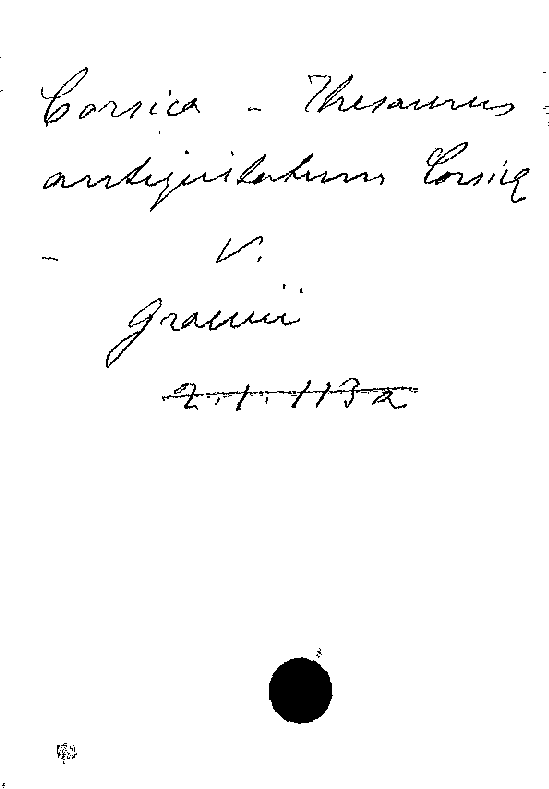 Corsica - Thesaurus
antiquitatum Corsicæ
- V.
Graevii
2.1.113a